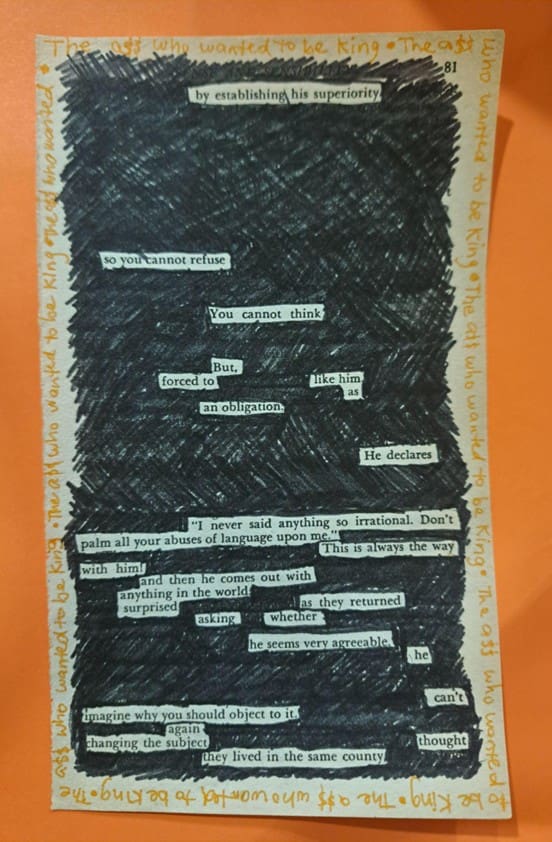 The a$$ who wanted to be King • The a$$ who wanted to be King • The a$$ who wanted to be King • The a$$ who wanted to be King • The a$$ who wanted to be King • The a$$ who wanted to be King • The a$$ who wanted to be King • The a$$ who wanted to be King • The a$$ who wanted
81
by establishing his superiority
so you cannot refuse
You cannot think
But,
forced to like him
as
an obligation.
He declares
"I never said anything so irrational. Don't
palm all your abuses of language upon me."
This is always the way
with him!
and then he comes out with
anything in the world
surprised as they returned
asking whether
he seems very agreeable,
he
can't
imagine why you should object to it.
again
changing the subject thought
they lived in the same county